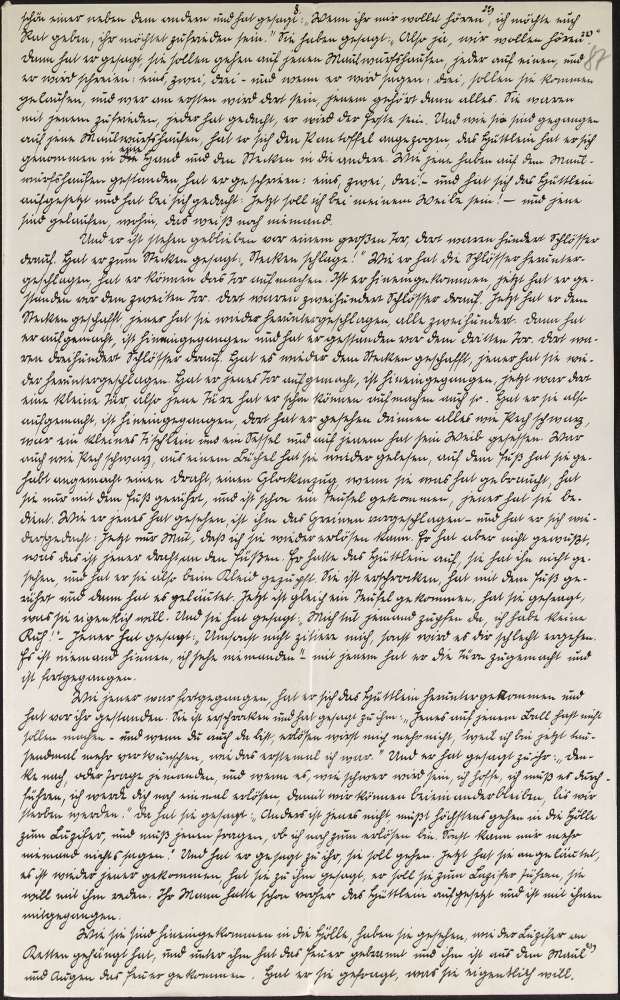 8.
schön einer neben dem andern und hat gesagt: „Wenn ihr mir wollet hören 29), ich möchte euch
Rat geben, ihr möchtet zufrieden sein." Sie haben gesagt: „Also ja, wir wollen hören 30)."
87
Dann hat er gesagt, sie sollen gehen auf jenen Maulwurfshaufen, jeder auf einen, und
er wird schreien: eins, zwei, drei – und wenn er wird sagen: drei, sollen sie kommen
gelaufen, und wer am ersten wird dort sein, jenem gehört dann alles. Sie waren
mit jenem zufrieden, jeder hat gedacht, er wird der Erste sein. Und wie sie sind gegangen
auf jene Maulwurfshaufen, hat er sich den Pantoffel angezogen, das Hüttlein hat er sich
genommen in eine Hand und den Stecken in die andere. Wie jene haben auf dem Maul-
wurfshaufen gestanden hat er geschrieen: eins, zwei, drei! – und hat sich das Hüttlein
aufgesetzt und hat bei sich gedacht: Jetzt soll ich bei meinem Weibe sein! – und jene
sind gelaufen, wohin, das weiß noch niemand.
Und er ist stehen geblieben vor einem großen Tor, dort waren hundert Schlösser
drauf. Hat er zum Stecken gesagt: „Stecken schlage!" Wie er hat die Schlösser herunter-
geschlagen hat er können das Tor aufmachen. Ist er hineingekommen, jetzt hat er ge-
standen vor dem zweiten Tor. Dort waren zweihundert Schlösser drauf. Jetzt hat er dem
Stecken geschafft, jener hat sie wieder heruntergeschlagen, alle zweihundert. Dann hat
er aufgemacht, ist hineingegangen und hat er gestanden vor dem dritten Tor. Dort wa-
ren dreihundert Schlösser drauf. Hat er wieder dem Stecken geschafft, jener hat sie wie-
der heruntergeschlagen. Hat er jenes Tor aufgemacht, ist hineingegangen, jetzt war dort
eine kleine Tür also jene Türe hat er schon können aufmachen auch so. Hat er sie also
aufgemacht, ist hineingegangen, dort hat er gesehen drinnen alles wie Pech schwarz,
war ein kleines Tischlein und ein Sessel und auf jenem hat sein Weib gesessen. War
auch wie Pech schwarz, aus einem Büchel hat sie wieder gelesen, auf dem Fuß hat sie ge-
habt angemacht einen Draht, einen Glockenzug, wenn sie was hat gebraucht, hat
sie nur mit dem Fuß gerührt, und ist schon ein Teufel gekommen, jener hat sie be-
dient. Wie er jenes hat gesehen, ist ihm das Greinen vorgeschlagen – und hat er sich wie-
der gedacht: Jetzt nur Mut, daß ich sie wieder erlösen kann. Er hat aber nicht gewußt,
was das ist jener Draht an den Füßen. Er hatte das Hüttlein auf, sie hat ihn nicht ge-
sehen, und hat er sie also beim Kleid gezupft. Sie ist erschrocken, hat mit dem Fuß ge-
rührt und dann hat es geläutet. Jetzt ist gleich ein Teufel gekommen, hat sie gefragt,
was sie eigentlich will. Und sie hat gesagt: „Mich tut jemand zupfen da, ich habe keine
Ruh!" – Jener hat gesagt: „Umsonst nicht zitiere mich, sonst wird es dir schlecht ergehen.
Es ist niemand hinnen, ich sehe niemanden" – mit jenem hat er die Türe zugemacht und
ist fortgegangen.
Wie jener war fortgegangen, hat er sich das Hüttlein heruntergenommen und
hat vor ihr gestanden. Sie ist erschrocken und hat gesagt zu ihm: „Jenes auf jenem Ball hast nicht
sollen machen – und wenn du auch da bist, erlösen wirst mich mehr nicht, weil ich bin jetzt tau-
sendmal mehr verwunschen, wie das erste mal ich war." Und er hat gesagt zu ihr: „Den-
ke nach, oder frage jemanden, und wenn es, wie schwer wird sein, ich hoffe, ich muß es durch-
führen, ich werde dich noch einmal erlösen, damit wir können beieinanderbleiben, bis wir
sterben werden." Da hat sie gesagt: „Anders ist jenes nicht, müßt höchstens gehen in die Hölle
zum Luzifer, und muß jenen fragen, ob ich noch zum erlösen bin. Sonst kann mir mehr
niemand nichts sagen." Und hat er gesagt zu ihr, sie soll gehen. Jetzt hat sie angeläutet,
es ist wieder jener gekommen, hat sie zu ihm gesagt, er soll sie zum Luzifer führen, sie
will mit ihm reden. Ihr Mann hatte schon vorher das Hüttlein aufgesetzt und ist mit ihnen
mitgegangen.
Wie sie sind hineingekommen in die Hölle, haben sie gesehen, wie der Luzifer an
Ketten gehängt hat, und unter ihm hat das Feuer gebrannt und ihm ist aus dem Maul 31)
und Augen das Feuer gekommen. Hat er sie gefragt, was sie eigentlich will.